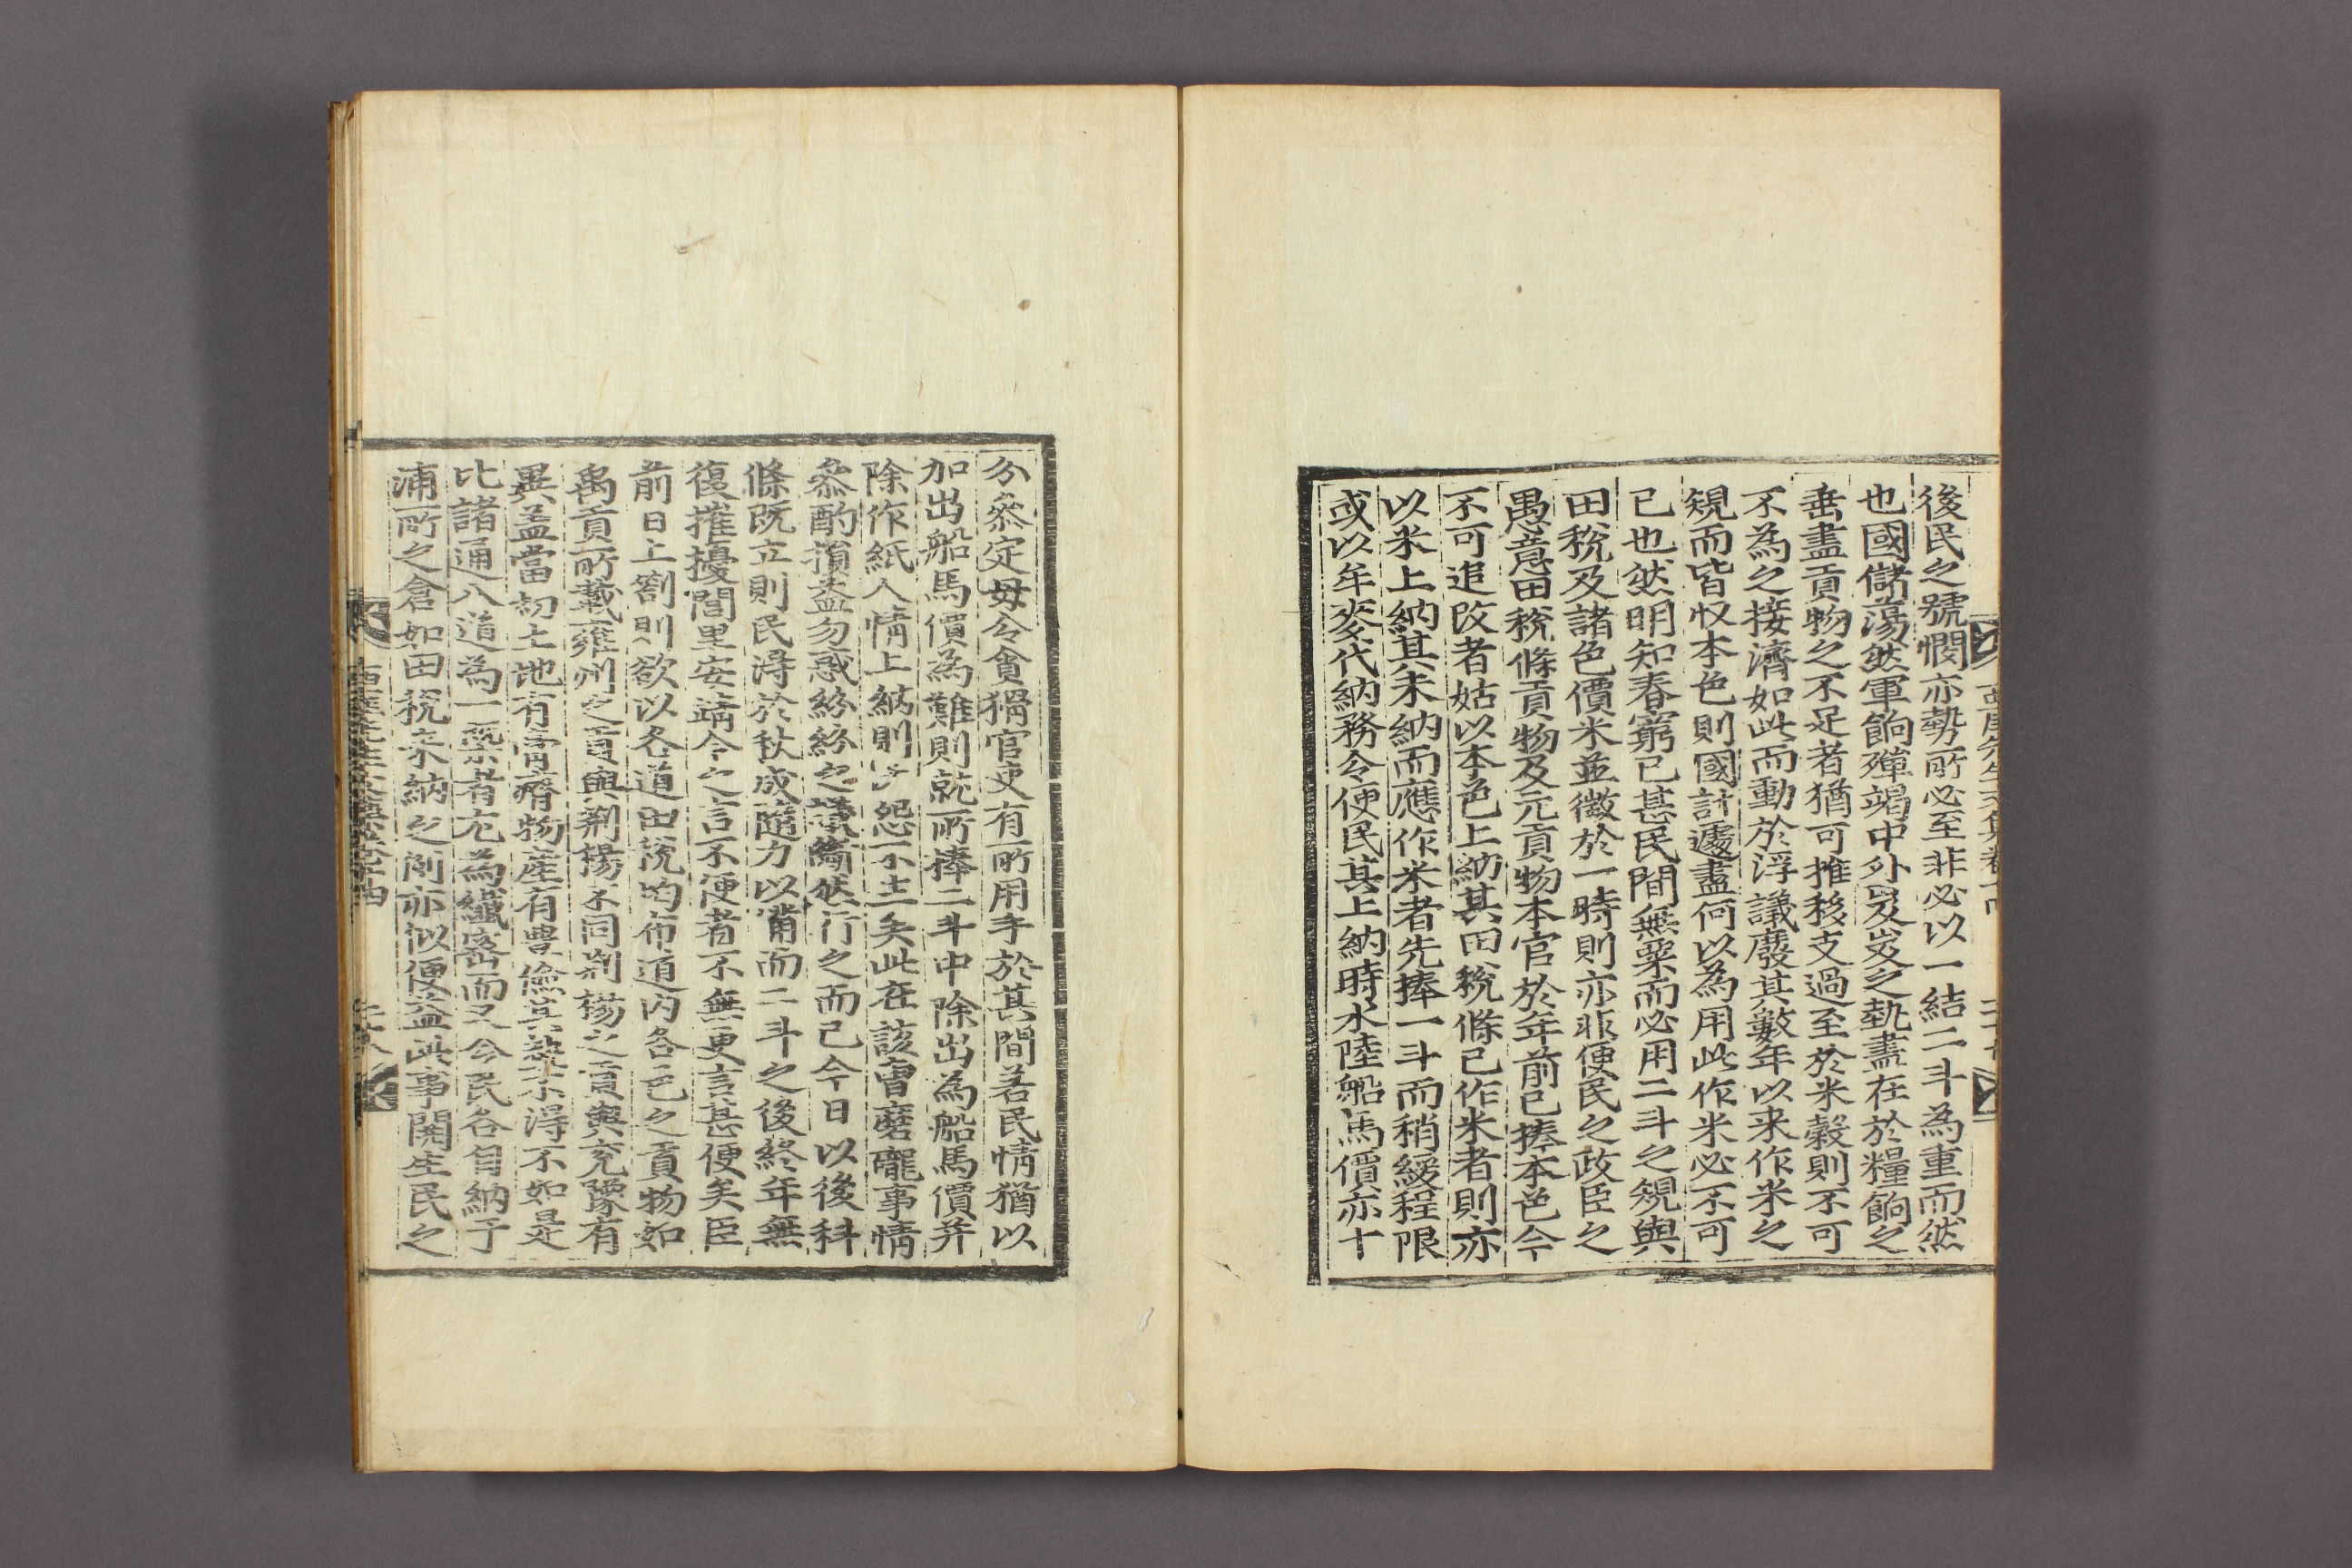 後民之號憫亦勢所必至非必以一結二斗為重而然
也國儲蕩然軍餉殫竭中外岌岌之勢盡在於糧餉之
乏盡貢物之不足者猶可推移支過至於米穀則不可
不為之接濟如此而動於浮議廢其數年以来作米之
規而皆収本色則國計遽盡何以為用此作米必不可
已也然明知春窮已甚民間無粟而必用二斗之規與
田稅及諸色價米並徵於一時則亦非便民之政臣之
愚意田稅條貢物及元貢物本官於年前已捧本色今
不可追改者姑以本色上納其田稅條已作米者則亦
以米上納其未納而應作米者先捧一斗而稍緩程限
或以牟麥代納務令便民其上納時水陸船馬價亦十
分叅定毋令貪猾官吏有所用手於其間若民情猶以
加出船馬價為難則就所捧二斗中除出為船馬價并
除作紙人情上納則 怨不生矣此在該曹磨礲事情
叅酌損益勿惑紛紛之 然行之而已今日以後科
條既立則民得於秋成隨力以備而二斗之後終年無
復摧擾閭里安靖今之言不便者不無更言甚便矣臣
前日上劄則欲以各道田稅均布道内各邑之貢物如
禹貢所載雍州之貢與荆楊不同荆楊之貢與兖豫有
異盖當初土地有膏瘠物産有豊儉其勢不得不如是
比諸通八道為一槩者尤為纖密而又令民各自納于
浦所之倉如田稅来納之例亦似便益此事關生民之